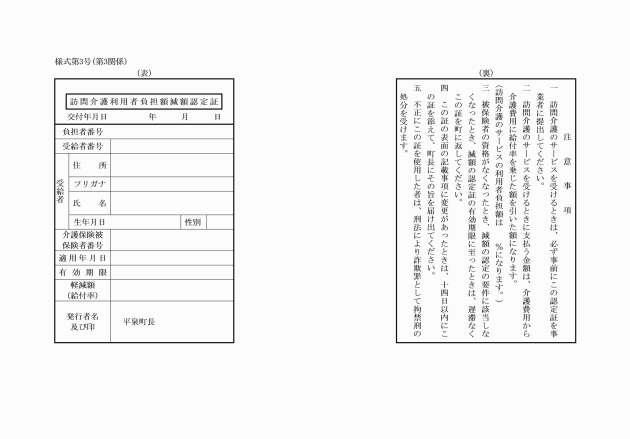 様式第3号(第3関係)
(表)
訪問介護利用者負担額減額認定証
交付年月日　年　月　日
負担者番号
受給者番号
受給者
住所
フリガナ
氏名
生年月日
性別
介護保険被
保険者番号
適用年月日
有効期限
軽減額
(給付率)
発行者名
及び印
平泉町長
(裏)
注意事項
一　訪問介護のサービスを受けるときは、必ず事前にこの認定証を事
業者に提出してください。
二　訪問介護のサービスを受けるときに支払う金額は、介護費用から
介護費用に給付率を乗じた額を引いた額になります。
(訪問介護のサービスの利用者負担額は　　%になります。)
三　被保険者の資格がなくなったとき、減額の認定の要件に該当しな
くなったとき、減額の認定証の有効期限に至ったときは、遅滞なく
この証を町に返してください。
四　この証の表面の記載事項に変更があったときは、十四日以内にこ
の証を添えて、町長にその旨を届け出てください。
五　不正にこの証を使用した者は、刑法により詐欺罪として拘禁刑の
処分を受けます。